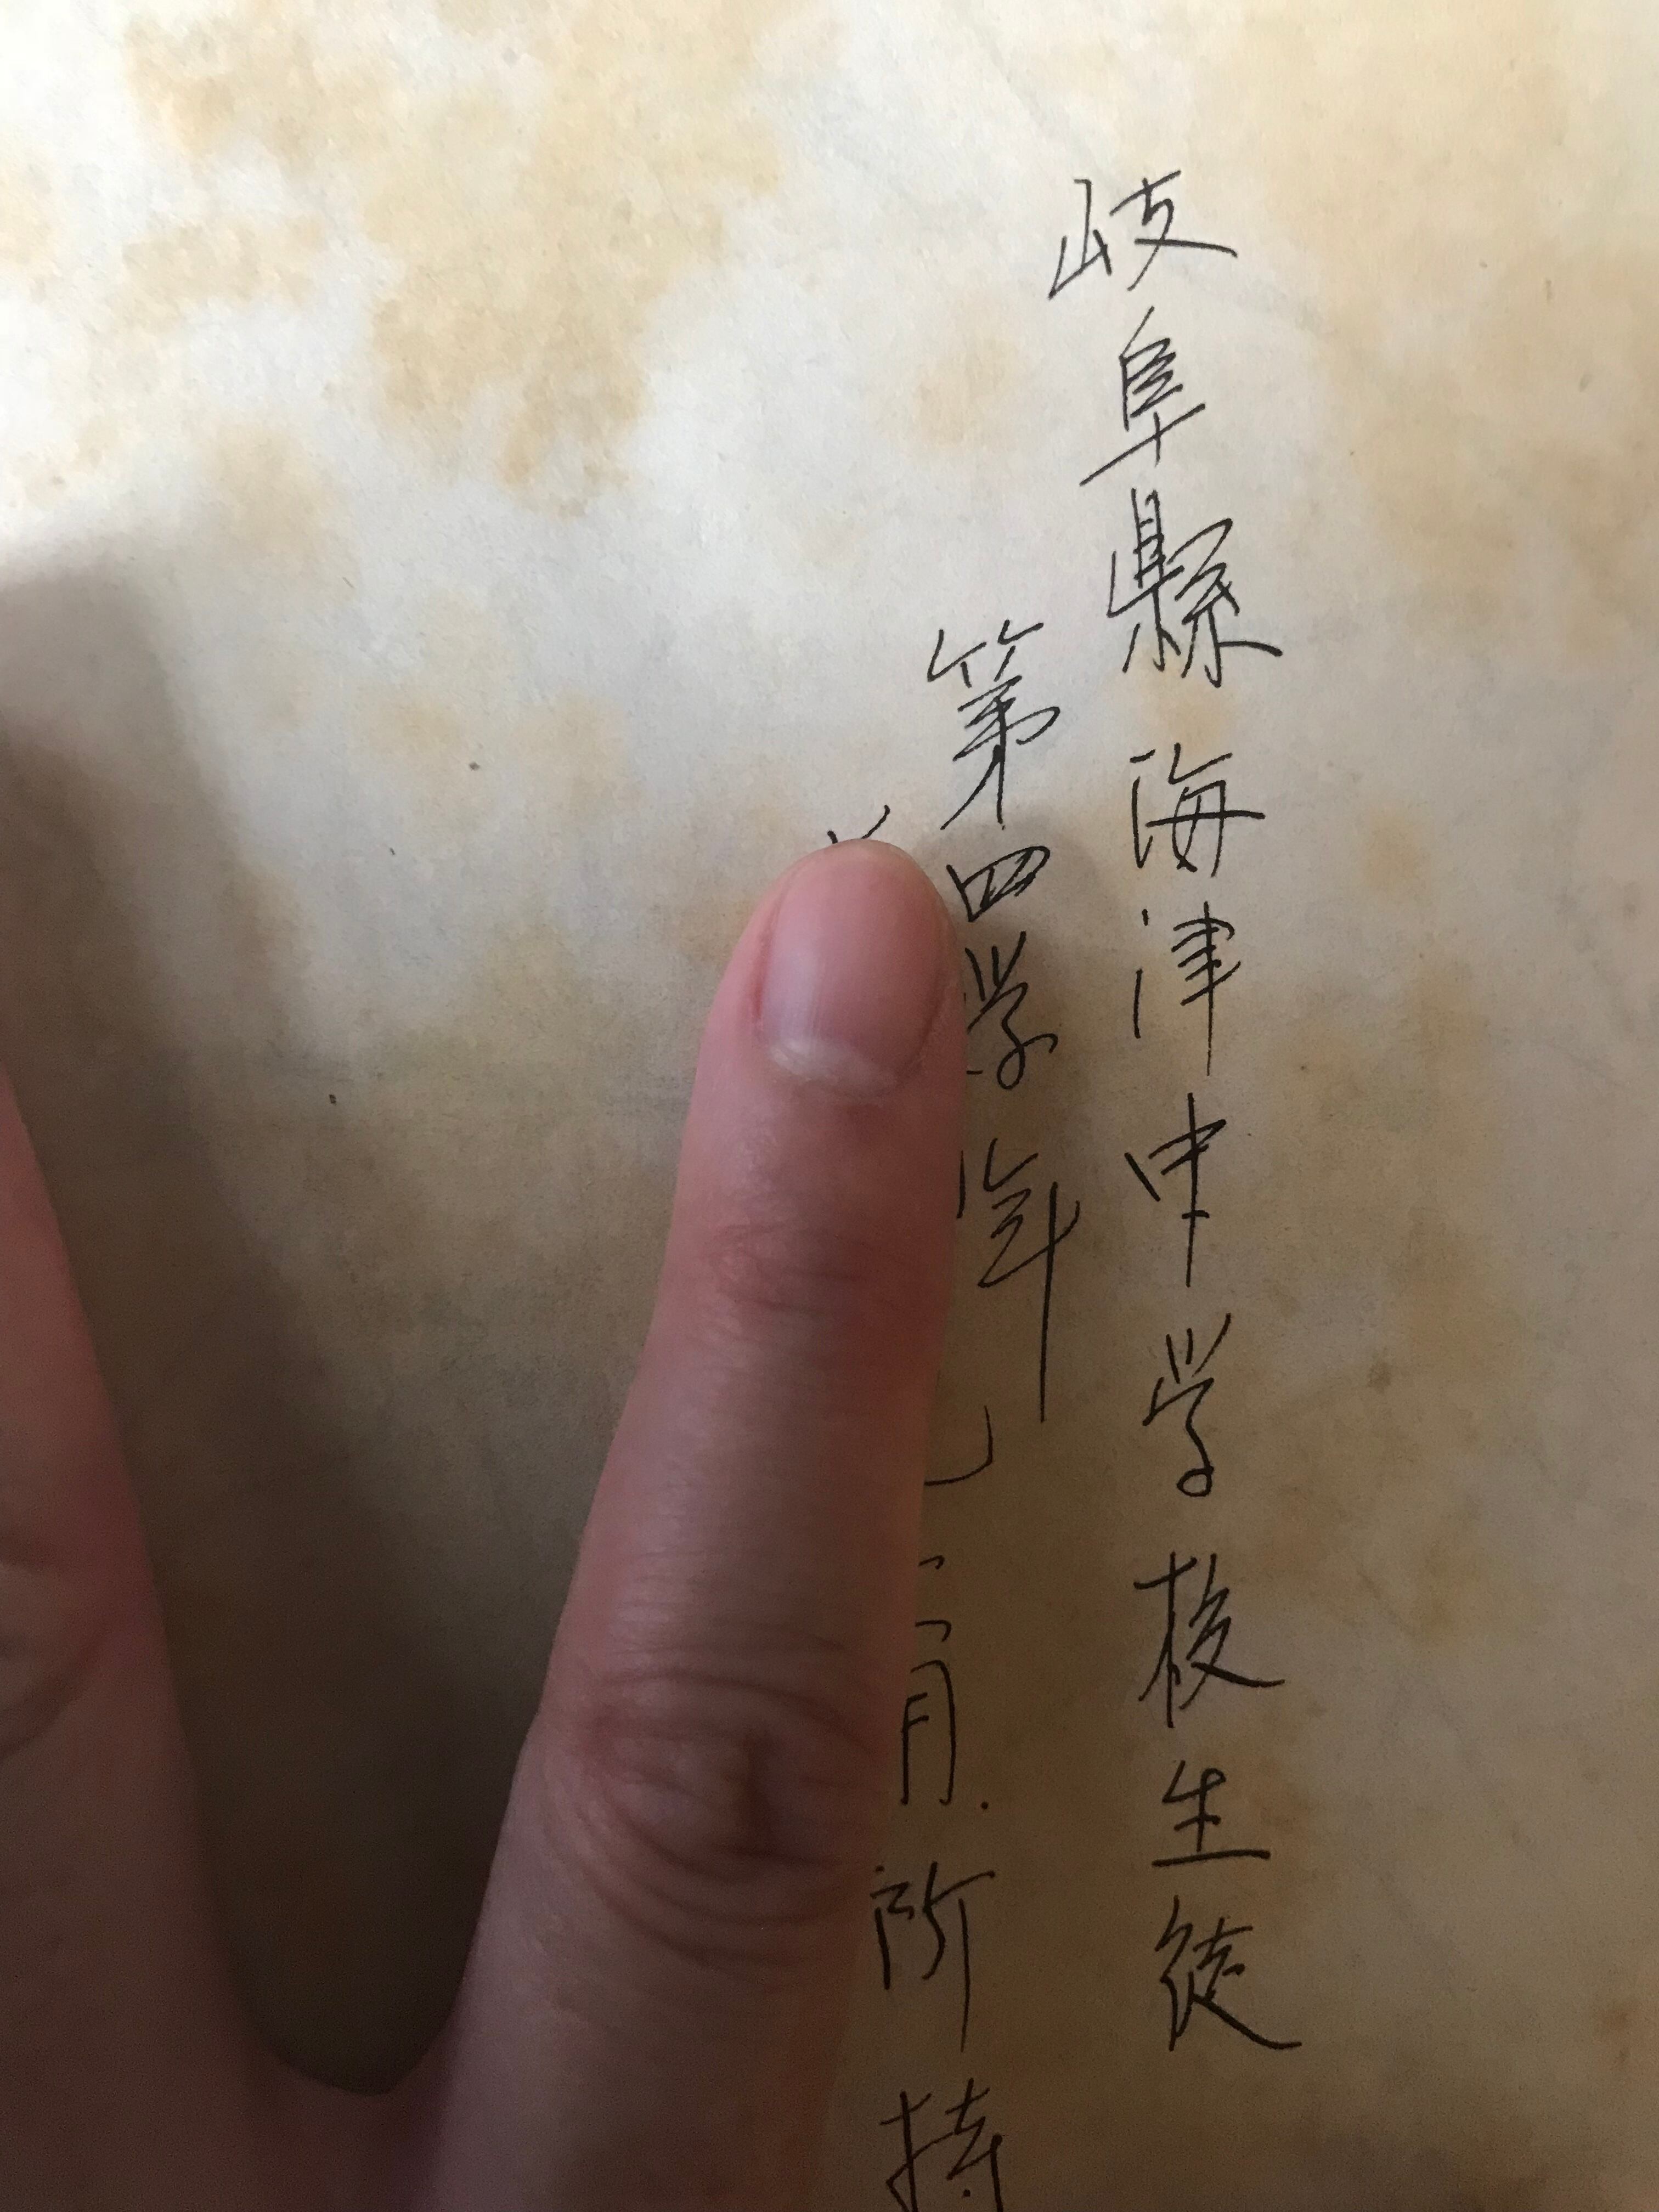 岐阜縣海津中学校生徒
第四学年
所持